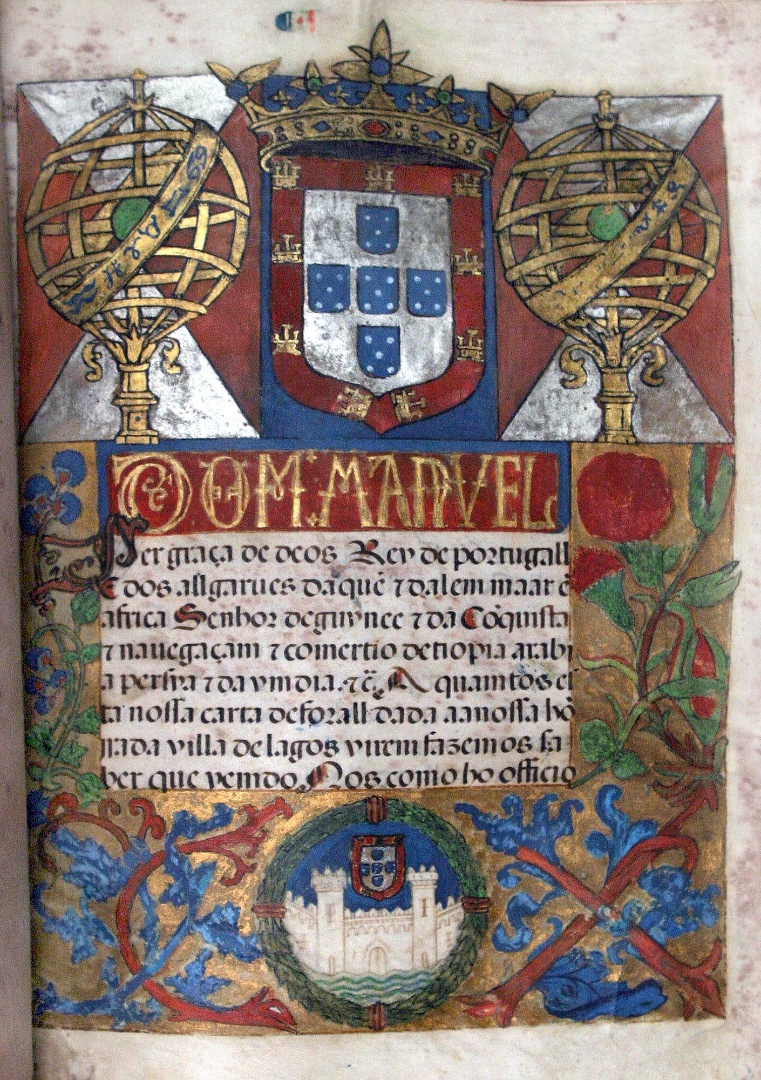 DOM: MANVEL
Per graça de deos Rey de portugall
E dos allgarues daquẽ ⁊ dalem maar ẽ
africa Senhor de guynee ⁊ da Cõquista
⁊ nauegaçam ⁊ comertio detiopia arabi
a persya ⁊ da ymdia.⁊c̃. A quamtos es
ta nossa carta deforall dada aanossa hõ
rrada villa de lagos virem fazemos sa
ber que vemdo Nos como ho officio